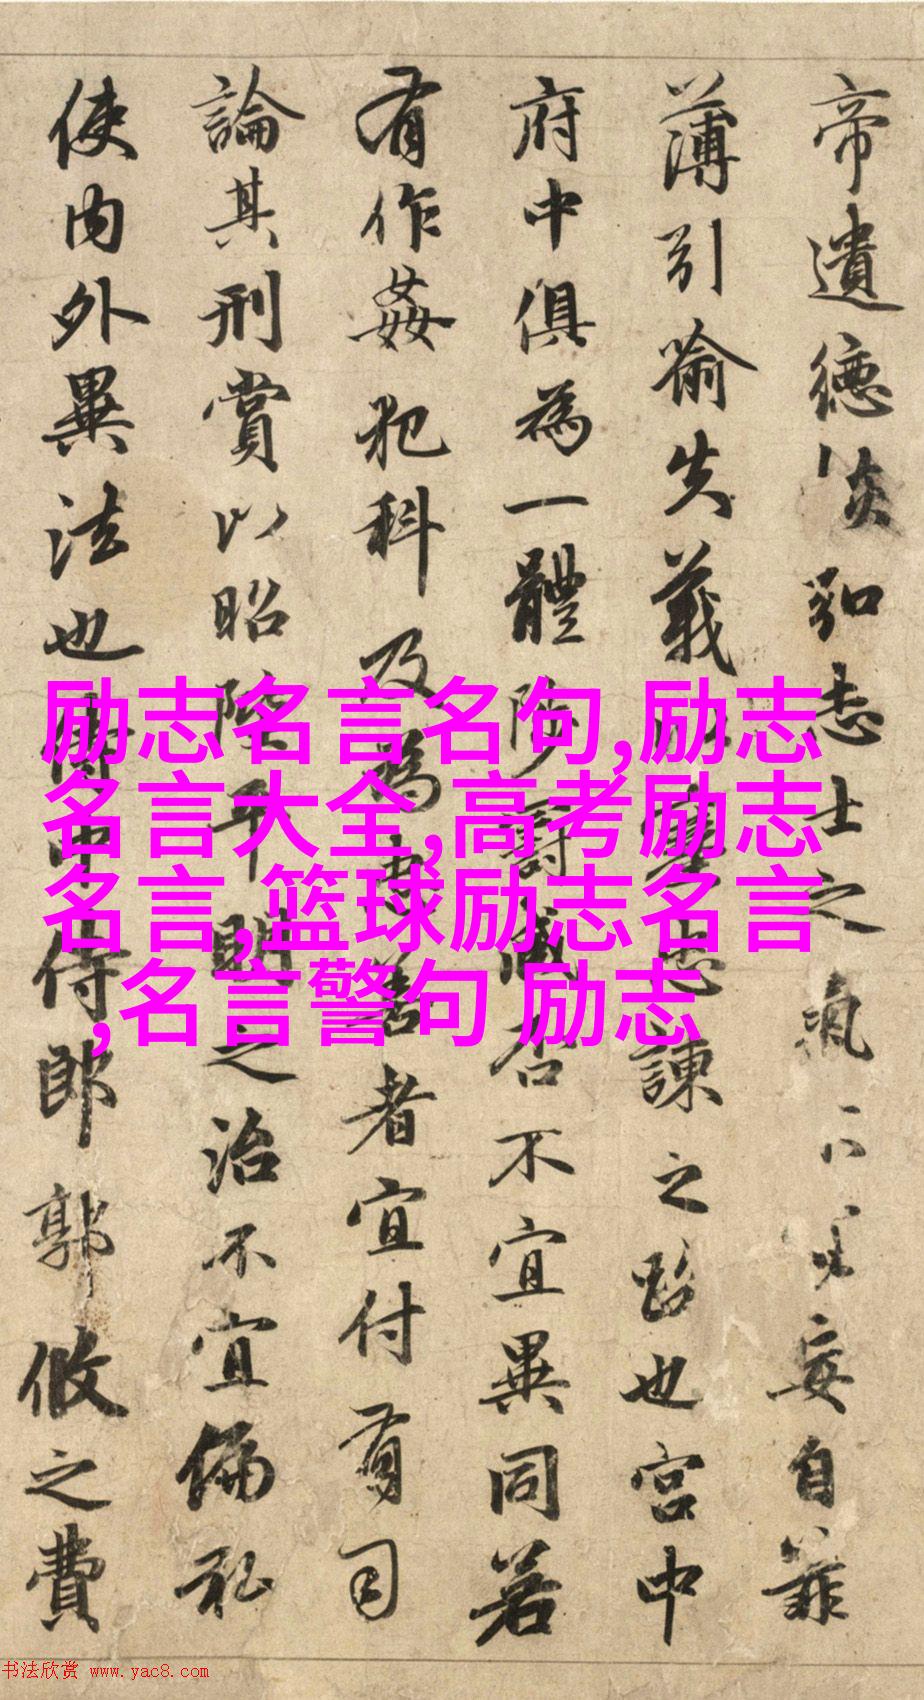 帝遺德恢弘志士之氣不妄自菲
薄引喻失義以塞忠諫之路也宮中
府中俱為一體陟罰臧否不宜異同若
有作姦犯科及為忠善者宜付有司
論其刑賞以昭陛平明之治不宜偏私
使内外異法也侍中侍郎郭攸之費
励志名言名句,励志
名言大全,高考励志
名言,篮球励志名言
,名言警句 励志
书法欣赏 www.yac8.com